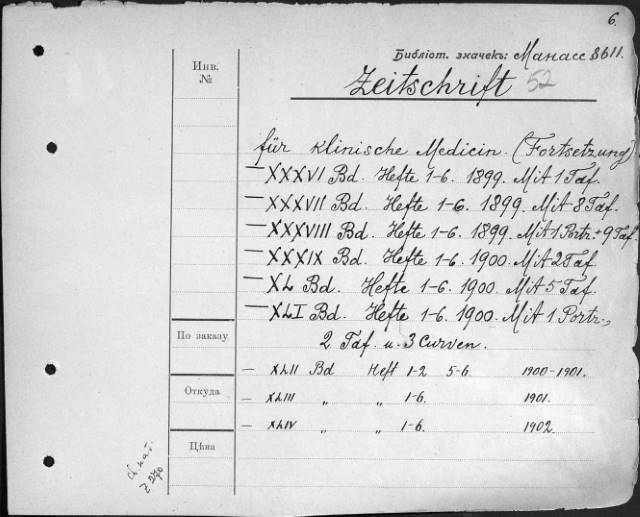 6.
Библіот. значекъ: Манасс 8611.
Инв.
№
Zeitschrift 52
für klinische Medicin. (Fortsetzung)
— XXXVI Bd. Hefte 1-6. 1899. Mit 1 Taf.
— XXXVII Bd. Hefte 1-6. 1899. Mit 8 Taf.
— XXXVIII Bd. Hefte 1-6. 1899. Mit 1 Portr. + 9 Taf
— XXXIX Bd. Hefte 1-6. 1900. Mit 2 Taf
— XL Bd. Hefte 1-6. 1900. Mit 5 Taf
— XLI Bd. Hefte 1-6. 1900. Mit 1 Portr.,
По заказу
2 Taf. u. 3 Curven.
— XLII Bd Heft 1-2 5-6 1900-1901.
Откуда
— XLIII „ „ 1-6. 1901.
— XLIV „ „ 1-6. 1902.
Цѣна